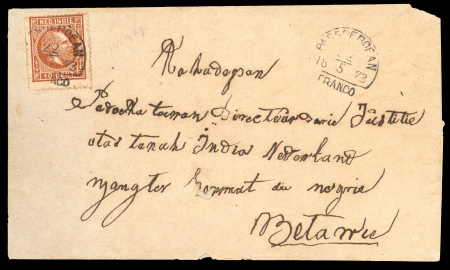 NED. INDIE
PASOEROEAN
22
18 5 73
FRANCO
Kahadapan
Padocka tawan Directuur darie Justitie
atas tanah India Nederland
yangter hormat die negrie
Betawie